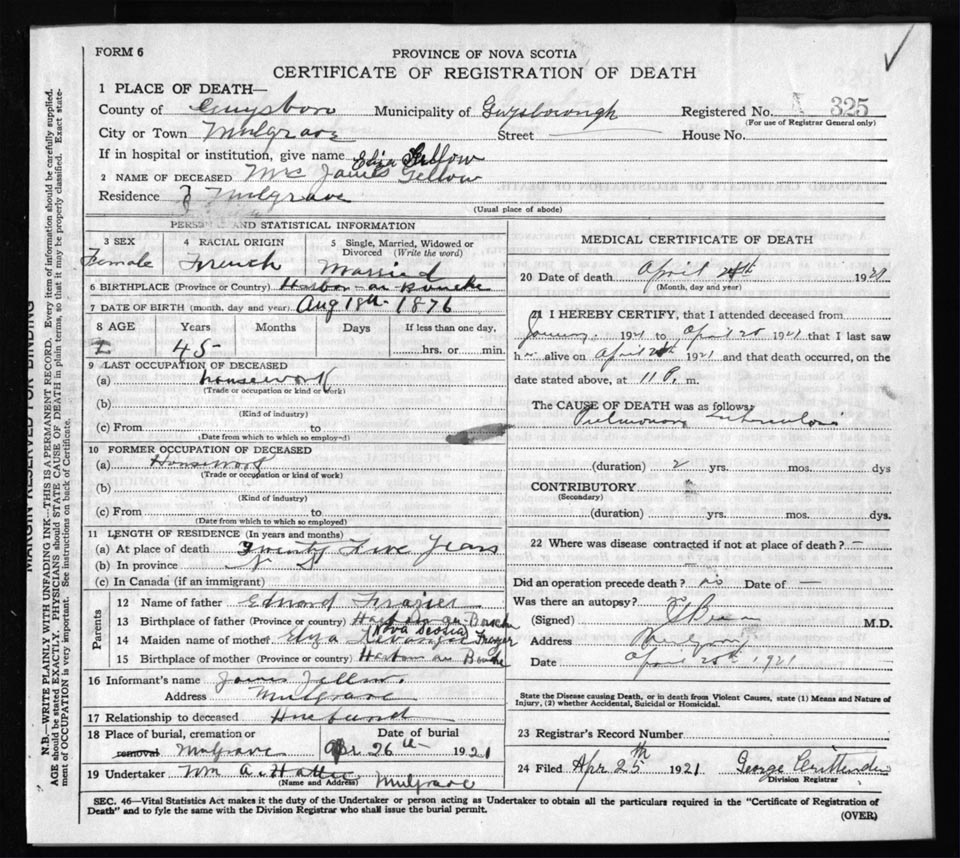 FORM 6
PROVINCE OF NOVA SCOTIA
CERTIFICATE OF REGISTRATION OF DEATH
1 PLACE OF DEATH—
County of Guysboro Municipality of Guysborough Registered No. 325
(For use of Registrar General only)
City or Town Mulgrave Street House No.
If in hospital or institution, give name
Eliza Jellow
2 NAME OF DECEASED Mrs James Jellow
Residence Mulgrave
(Usual place of abode)
PERSONAL AND STATISTICAL INFORMATION
3 SEX 4 RACIAL ORIGIN 5 Single, Married, Widowed or Divorced (Write the word)
Female French Married
6 BIRTHPLACE (Province or Country) Harbor au Bouche
7 DATE OF BIRTH (month, day and year) Aug 18th 1876
8 AGE Years Months Days If less than one day,
45 hrs. or min.
9 LAST OCCUPATION OF DECEASED
(a) housework
(Trade or occupation or kind of work)
(b)
(Kind of industry)
(c) From to
(Date from which to which so employed)
10 FORMER OCCUPATION OF DECEASED
(a) Housework
(Trade or occupation or kind of work)
(b)
(Kind of industry)
(c) From to
(Date from which to which so employed)
11 LENGTH OF RESIDENCE (In years and months)
(a) At place of death Twenty Five Years
(b) In province N S
(c) In Canada (if an immigrant)
Parents
12 Name of father Edward Frazier
13 Birthplace of father (Province or country) Harbor au Bouche
(Nova Scotia)
14 Maiden name of mother Eliza
15 Birthplace of mother (Province or country) Harbour au Bouche
16 Informant's name James Jellow.
Address Mulgrave
17 Relationship to deceased Husband
18 Place of burial, cremation or removal Mulgrave Date of burial Apr 26th 1921
19 Undertaker Wm A Hattie Mulgrave
(Name and Address)
MEDICAL CERTIFICATE OF DEATH
20 Date of death April 1921
(Month, day and year)
21 I HEREBY CERTIFY, that I attended deceased from
January 1921 to April 20 1921 that I last saw
her alive on April 1921 and that death occurred, on the
date stated above, at 11 P. m.
The CAUSE OF DEATH was as follows:
Pulmonary Tuberculosis
(duration) 2 yrs. mos. dys
CONTRIBUTORY
(Secondary)
(duration) yrs. mos. dys.
22 Where was disease contracted if not at place of death? —
Did an operation precede death? no Date of —
Was there an autopsy?
(Signed) M.D.
Address Mulgrave
Date April 25th 1921
State the Disease causing Death, or in death from Violent Causes, state (1) Means and Nature of
Injury, (2) whether Accidental, Suicidal or Homicidal.
23 Registrar's Record Number
24 Filed Apr 25th 1921 George Crittenden
Division Registrar
SEC. 46—Vital Statistics Act makes it the duty of the Undertaker or person acting as Undertaker to obtain all the particulars required in the "Certificate of Registration of
Death" and to fyle the same with the Division Registrar who shall issue the burial permit.
(OVER)
MARGIN RESERVED FOR BINDING
N.B.—WRITE PLAINLY WITH UNFADING INK—THIS IS A PERMANENT RECORD. Every item of information should be carefully supplied.
AGE should be stated EXACTLY. PHYSICIANS should STATE CAUSE OF DEATH in plain terms, so that it may be properly classified. Exact statement of OCCUPATION is very important. See instructions on back of Certificate.